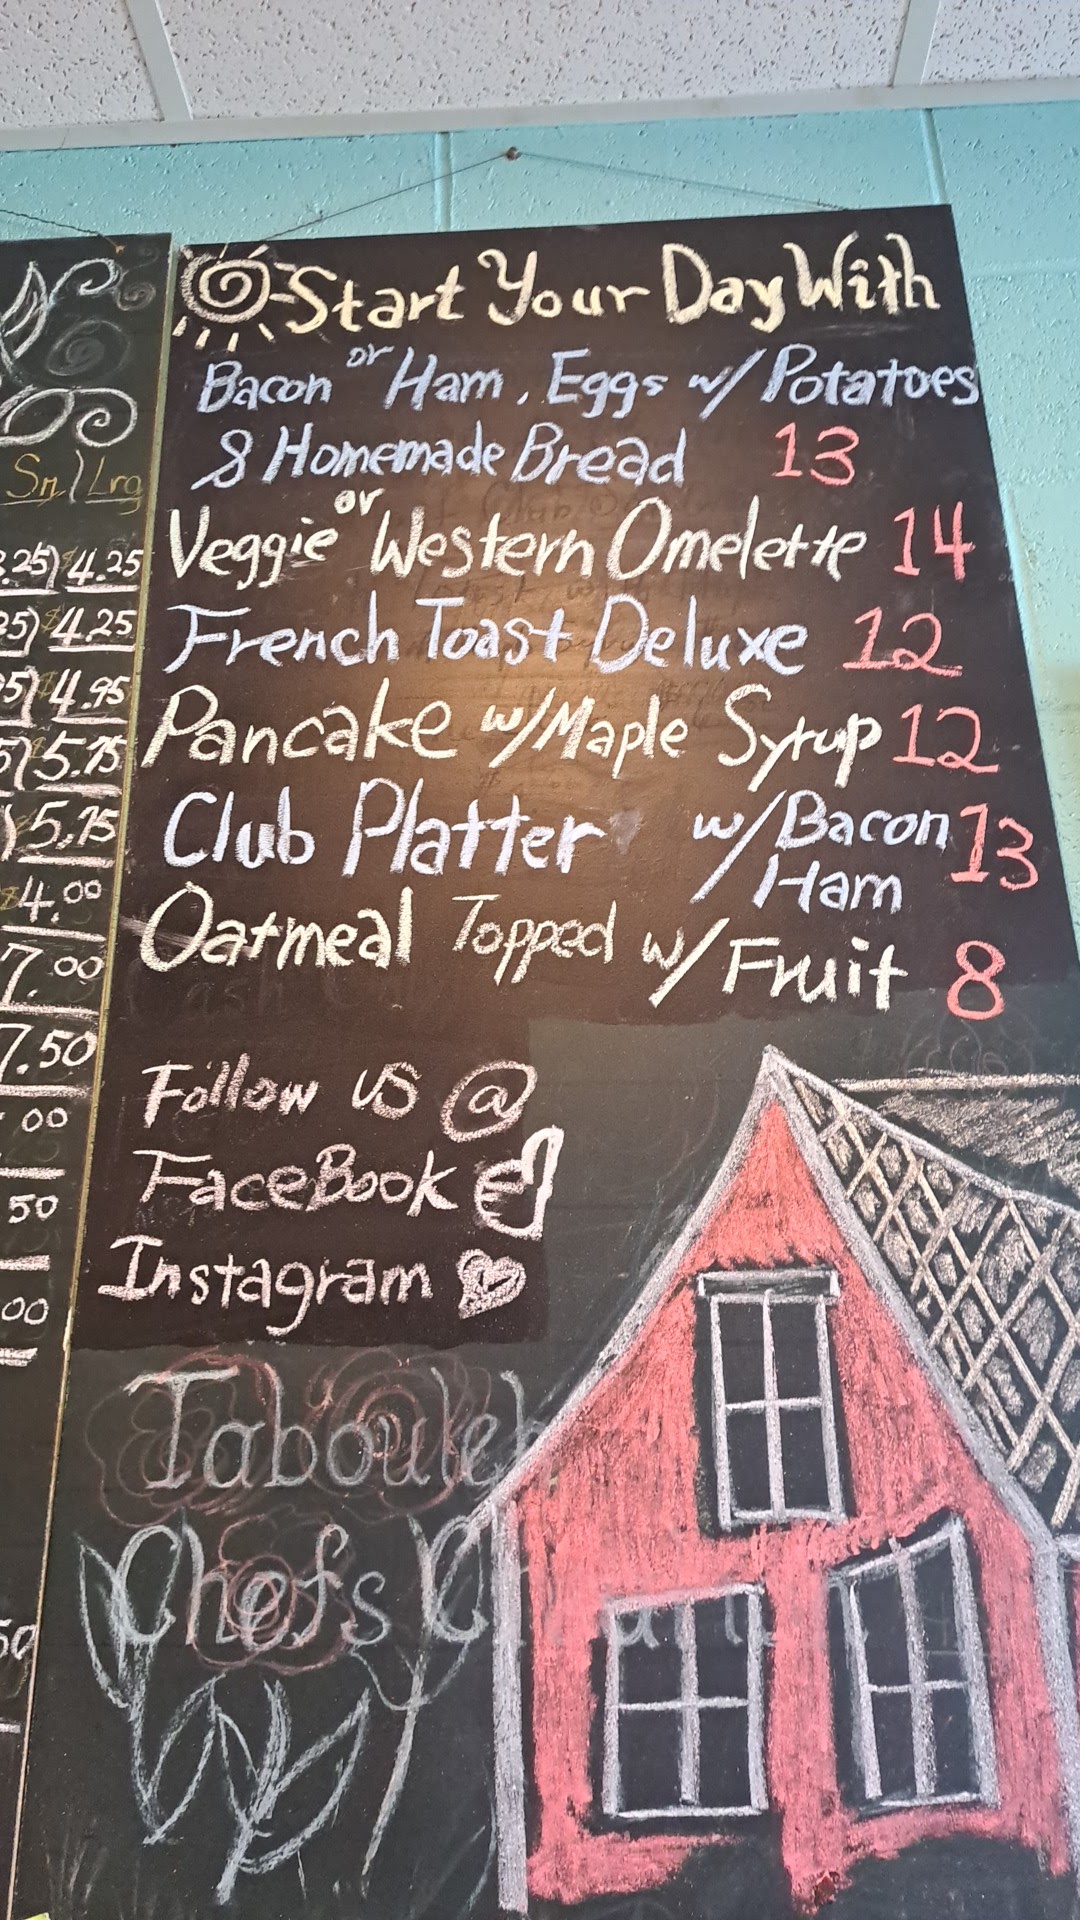 Start Your Day With
Bacon or Ham, Eggs w/ Potatoes
& Homemade Bread 13
Veggie or Western Omelette 14
French Toast Deluxe 12
Pancake w/ Maple Syrup 12
Club Platter w/ Bacon 13
Ham
Oatmeal Topped w/ Fruit 8
Follow us @
FaceBook
Instagram
Tabouleh
Chefs
Sm/Lrg
.25) $4.25
25) $4.25
95) 4.95
5) 5.75
) 5.75
$4.00
7.00
7.50
00
50
00
50